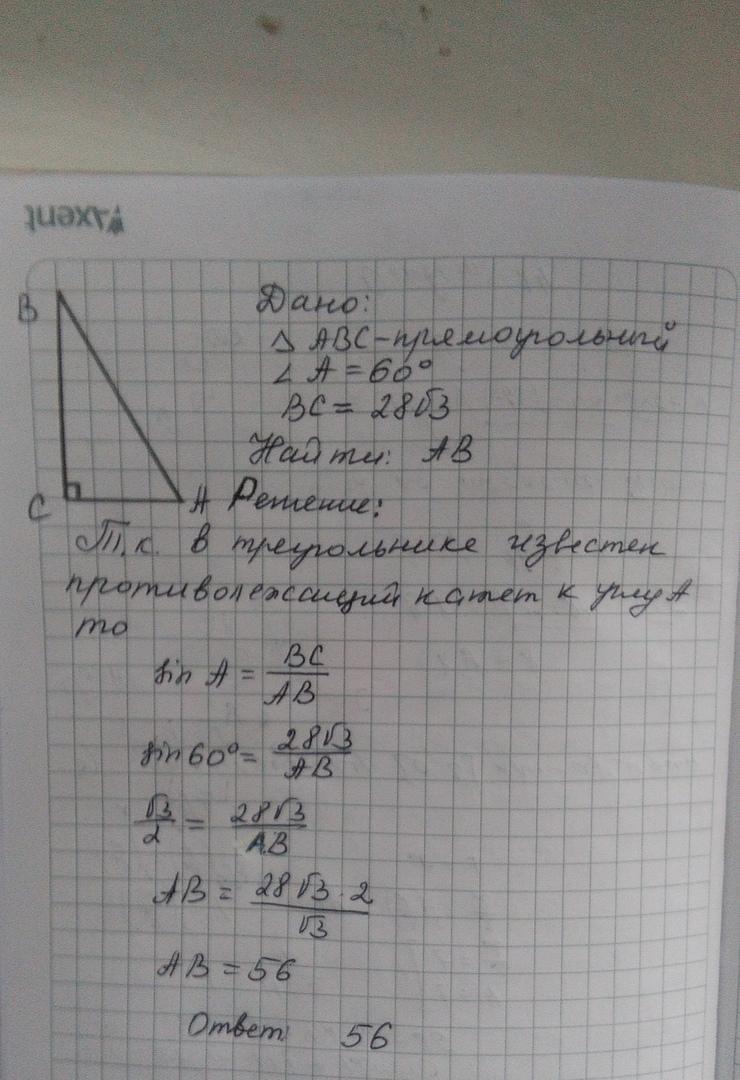 Axent
B
Дано:
△ ABC - прямоугольный
∠ A = 60°
BC = 28√3
Найти: AB
C
A
Решение:
Т.к. в треугольнике известен
противолежащий катет к углу A
то
sin A = BC/AB
sin 60° = 28√3/AB
√3/2 = 28√3/AB
AB = 28√3 · 2/√3
AB = 56
Ответ: 56